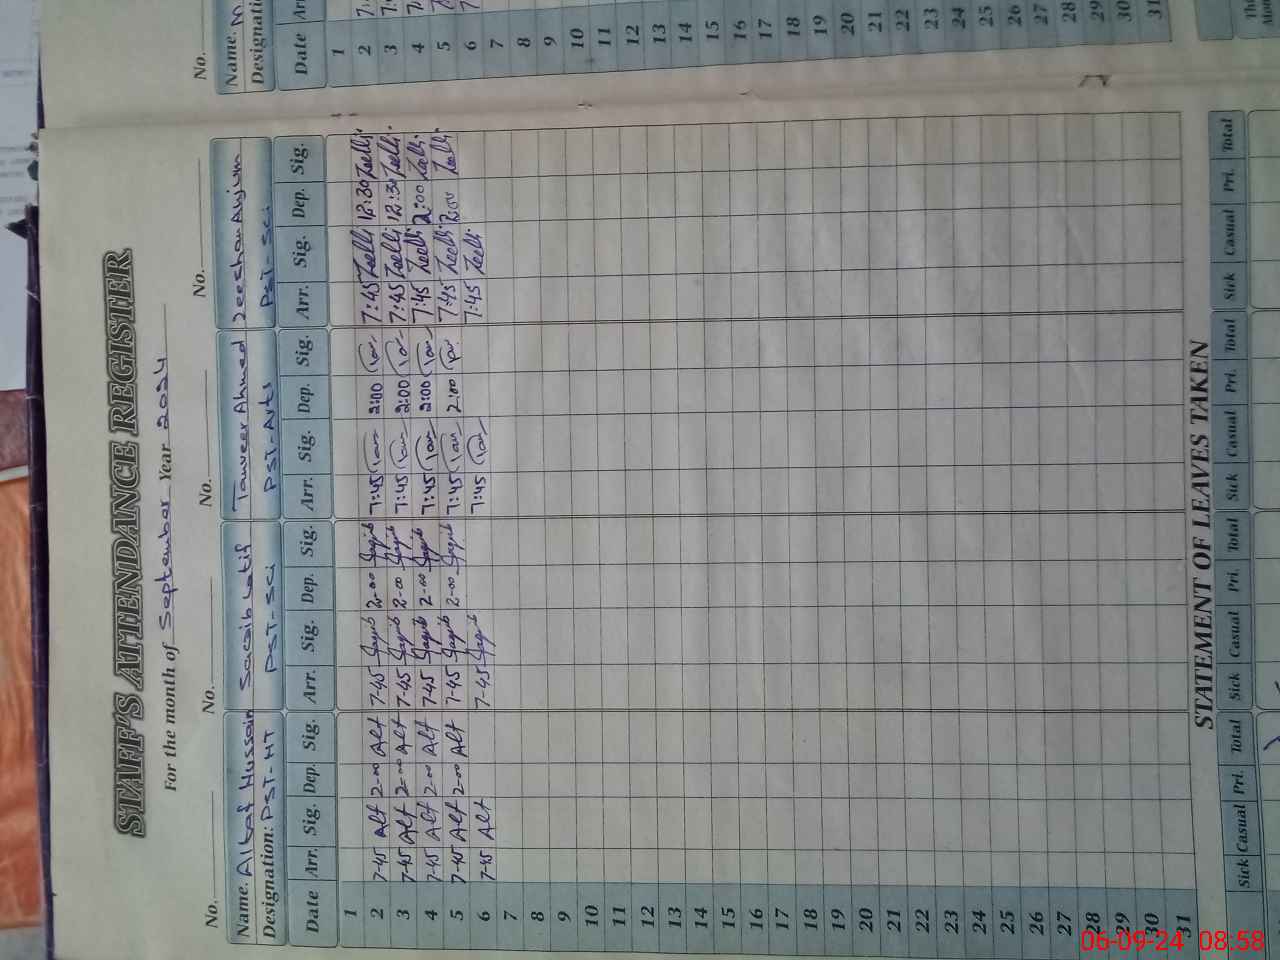 STAFF'S ATTENDANCE REGISTER
For the month of September Year 2024
No. No. No. No.
Name. Altaf Hussain Saqib Latif Tanveer Ahmed Zeeshan Anjum
Designation: PST-HT PST-Sci PST-Arts PST-Sci
Date Arr. Sig. Dep. Sig. Arr. Sig. Dep. Sig. Arr. Sig. Dep. Sig. Arr. Sig. Dep. Sig.
1
2 7-45 Alt 2-00 Alt 7-45 Saqib 2-00 Saqib 7:45 Tan 2:00 Tan 7:45 12:30
3 7-45 Alt 2-00 Alt 7-45 Saqib 2-00 Saqib 7:45 Tan 2:00 Tan 7:45 12:30
4 7-45 Alt 2-00 Alt 7-45 Saqib 2-00 Saqib 7:45 Tan 2:00 Tan 7:45 2:00
5 7-45 Alt 2-00 Alt 7-45 Saqib 2-00 Saqib 7:45 Tan 2:00 Tan 7:45 2:00
6 7-45 Alt 7-45 Saqib 7:45 Tan 7:45
7
8
9
10
11
12
13
14
15
16
17
18
19
20
21
22
23
24
25
26
27
28
29
30
31
STATEMENT OF LEAVES TAKEN
Sick Casual Pri. Total Sick Casual Pri. Total Sick Casual Pri. Total Sick Casual Pri. Total
No.
Name.
Date
1
2
3
4
5
6
7
8
9
10
11
12
13
14
15
16
17
18
19
20
21
22
23
24
25
26
27
28
29
30
31
06-09-24 08:58